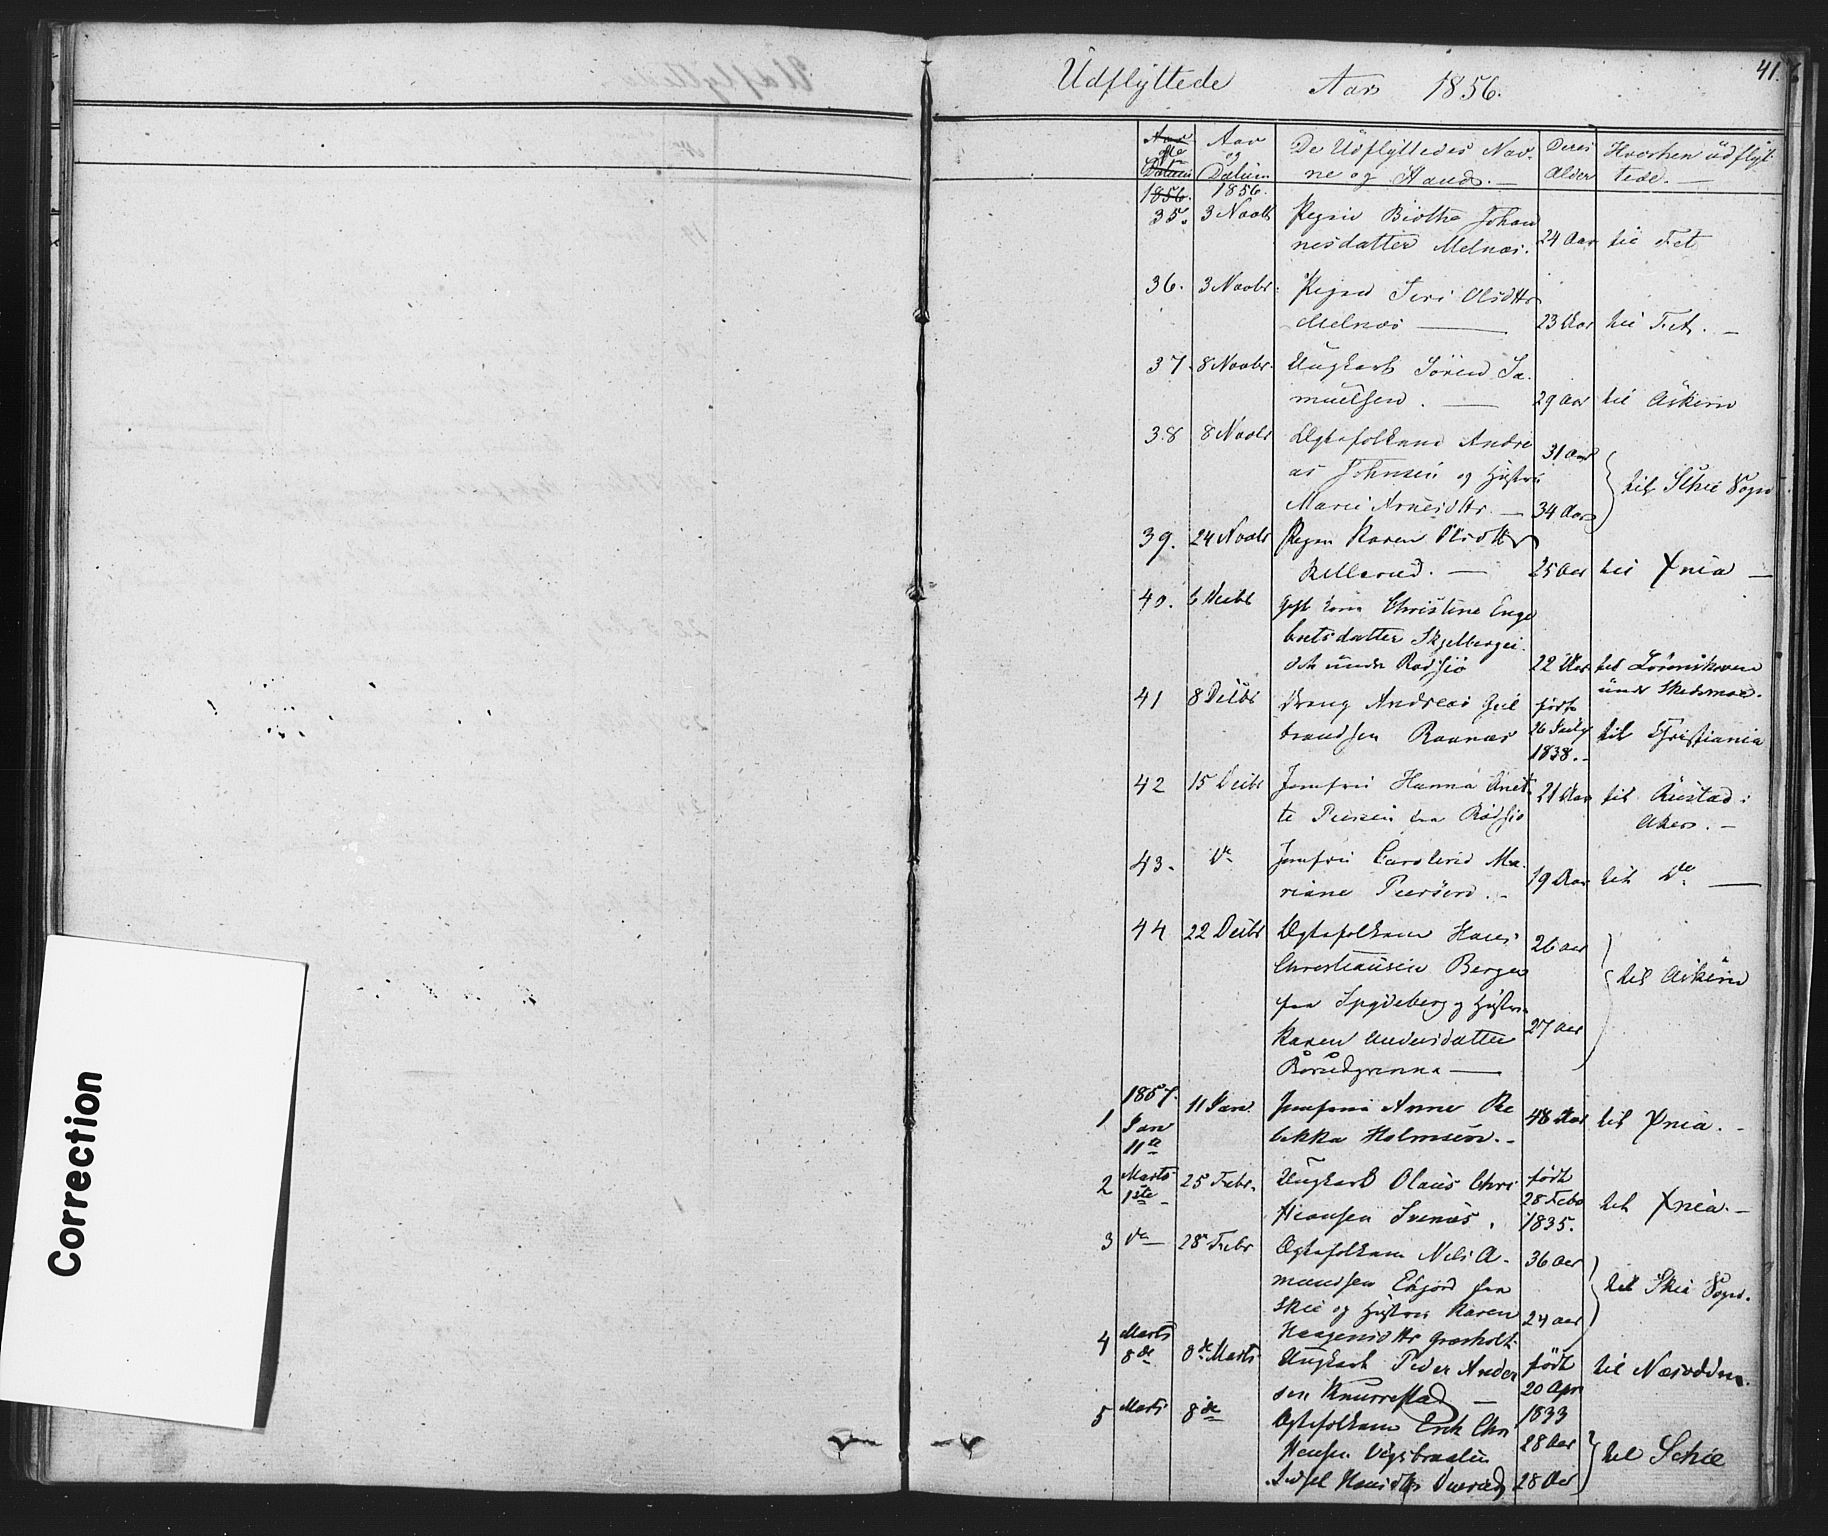 41.
Udflyttede Aar 1856.
Aar og Datum De Udflyttedes Navne og Stand. — Deres Alder Hvorhen udflyttede. —
1856. 1856.
35. 3 Novbr Pigen Birthe Johan
nesdatter Melnæs. 24 Aar til Fet
36. 3 Novbr. Pigen Siri Olsdttr
Melnæs — 23 Aar til Fet. —
37. 8 Novbr. Ungkarl Sören Sa-
muelsen. — 29 Aar til Askim
38 8 Novbr Ægtefolkene Andre
as Johnsen og Hustru 31 Aar
Marie Arnesdttr. — 34 Aar til Skie Sogn
39. 24 Novbr Pigen Karen Olsdttr
— 25 Aar til Xnia —
40. 6 Decbr Gift Kone Christine Enge
bretsdatter Skjelberge
under Rodsjö 22 Aar til Lörenskoven
under Skedsmoe.
41 8 Decbr Dreng Andreas Gul födt
brandsen Raanæs 26 July til Christiania
1838. -
42 15 Decbr Jomfru Hanna Anet-
te Peersen fra Rödsjö 21 Aar til Rustad i
Aker. —
43. do Jomfru Caroline Ma-
riane Peersen. - 19 Aar til do —
44 22 Decbr Ægtefolkene Hans 26 aar
Christiansen Berger
fra Spydeberg og Hustru til Askim
Karen Andersdatter 27 aar
—
1857.
1 Jan 11te 11 Jan. Jomfru Anne Re
bekka Holmsen. - 48 Aar til Xnia. -
2 Marts 1ste 25 Febr. Ungkarl Olaus Chri födt
stiansen Svenæs. 28 Febr 1835. til Xnia. —
3 do 28 Febr Ægtefolkene Nils A- 36 aar
mundsen fra
Skie og Hustru Karen 24 aar til Skie Sogn.
Haagensdttr Græsholt.
4 Marts 8de 8de Marts Ungkarl Peder Ander födt
sen Knurrestad — 20 Apr 1833 til Næsodden.
5 Marts 8de Ægtefolkene Erik Chri
stensen 28 Aar
Hansdttr 28 Aar til Schie
Correction